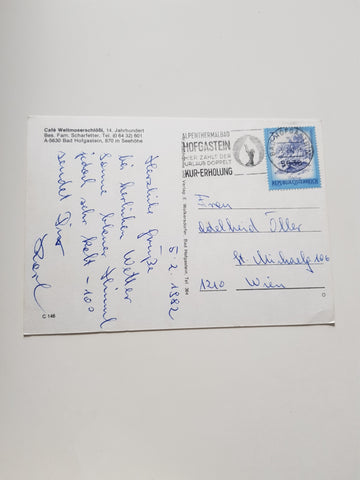 Café Weitmoserschlößl, 14. Jahrhundert
Bes. Fam. Scharfetter, Tel. (0 64 32) 601
A-5630 Bad Hofgastein, 870 m Seehöhe
ALPENTHERMALBAD
HOFGASTEIN
HIER ZÄHLT DER
URLAUB DOPPELT
KUR-ERHOLUNG
REPUBLIK ÖSTERREICH
5.2.1982
Herzliche Grüße
bei herrlichen Wetter
Sonne blauer Himmel
jedoch sehr kalt -10°
sendet Dir
Karl
Bad Hofgastein, Tel. 364
Frau
Adelheid Öller
St. Michaelg 106
1210 Wien
C 146